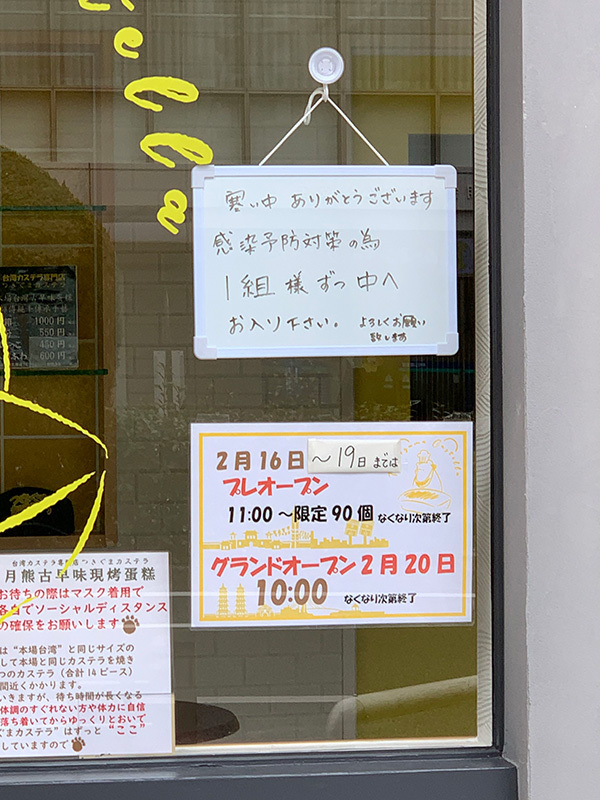 ella
寒い中 ありがとうございます
感染予防対策の為
1組様ずつ 中へ
お入り下さい。 よろしくお願い
致します
台湾カステラ専門店
つきぐまカステラ
1000円
550円
450円
600円
2月16日〜19日までは
プレオープン
11:00〜限定90個 なくなり次第終了
グランドオープン2月20日
10:00 なくなり次第終了
台湾カステラ専門店 つきぐまカステラ
月熊古早味現烤蛋糕
お待ちの際はマスク着用で
各自でソーシャルディスタンス
の確保をお願いします
は“本場台湾”と同じサイズの
して本場と同じカステラを焼き
つのカステラ（合計14ピース）
間近くかかります。
いきますが、待ち時間が長くなる
体調のすぐれない方や体力に自信
落ち着いてからゆっくりとおいで
ぐまカステラ”はずっと “ここ”
していますので